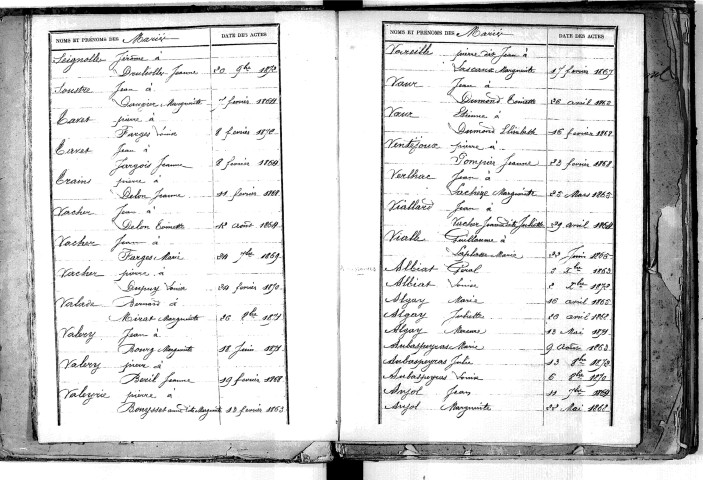 NOMS ET PRÉNOMS DES Mariés DATE DES ACTES
Seignolle Jérôme à
Jeanne 20 9bre 1872
Soustre Jean à
Marguerite 7 février 1864
Tavet pierre à
Farges Louise 8 février 1870
Tavet Jean à
Jargois Jeanne 9 février 1869
Trains pierre à
Delon Jeanne 11 février 1868
Vacher Jean à
Delon Toinette 12 Août 1864
Vacher Jean à
Farges Marie 24 7bre 1869
Vacher pierre à
Dupuy Louise 24 février 1870
Valade Bernard à
Mirat Marguerite 26 9bre 1871
Valery Jean à
Bourg Marguerite 18 Juin 1871
Valery pierre à
Breil Jeanne 19 février 1868
Valeyrie pierre à
Marguerite 12 février 1863
NOMS ET PRÉNOMS DES Mariés DATE DES ACTES
Vareille pierre dit Jean à
Lascaux Marguerite 17 février 1867
Vaur Jean à
Dumond Toinette 26 avril 1862
Vaur Etienne à
Dumond Elisabeth 16 février 1868
Ventéjoux pierre à
Pompier Jeanne 23 février 1868
Verlhac Jean à
Lachèze Marguerite 25 Mars 1865
Viallard Jean à
Vacher Jeanne dite Juliette 29 avril 1864
Vialle Guillaume à
Laplace Marie 22 Juin 1865
Albiat Géral 2 Xbre 1863
Albiat Louise 2 Xbre 1872
Algay Marie 16 avril 1865
Algay Juliette 20 avril 1862
Algay 13 Mai 1871
Aubaspeyras Marie 9 Août 1863
Aubaspeyras Julie 13 8bre 1872
Aubaspeyras Louise 6 8bre 1870
Anjol Jean 11 7bre 1869
Anjol Marguerite 28 Mai 1862